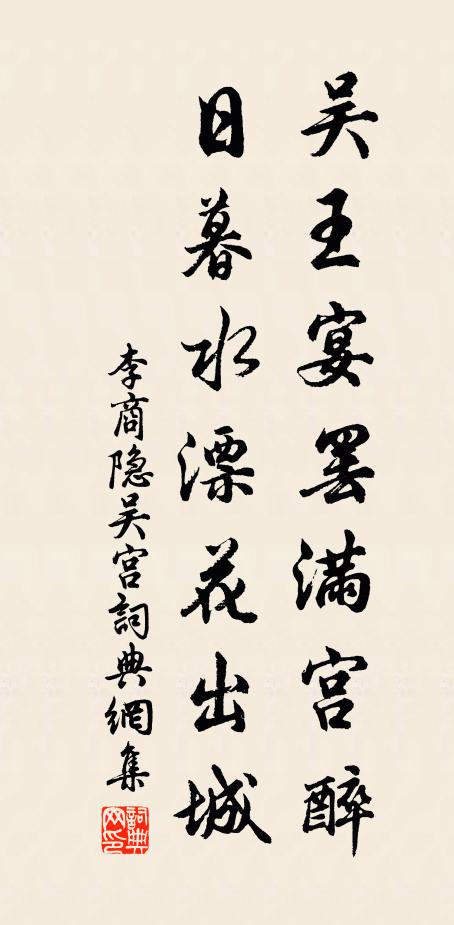 吴王宴罢满宫醉
日暮水漂花出城
李商隐吴宫詞典網集
詞典
网印